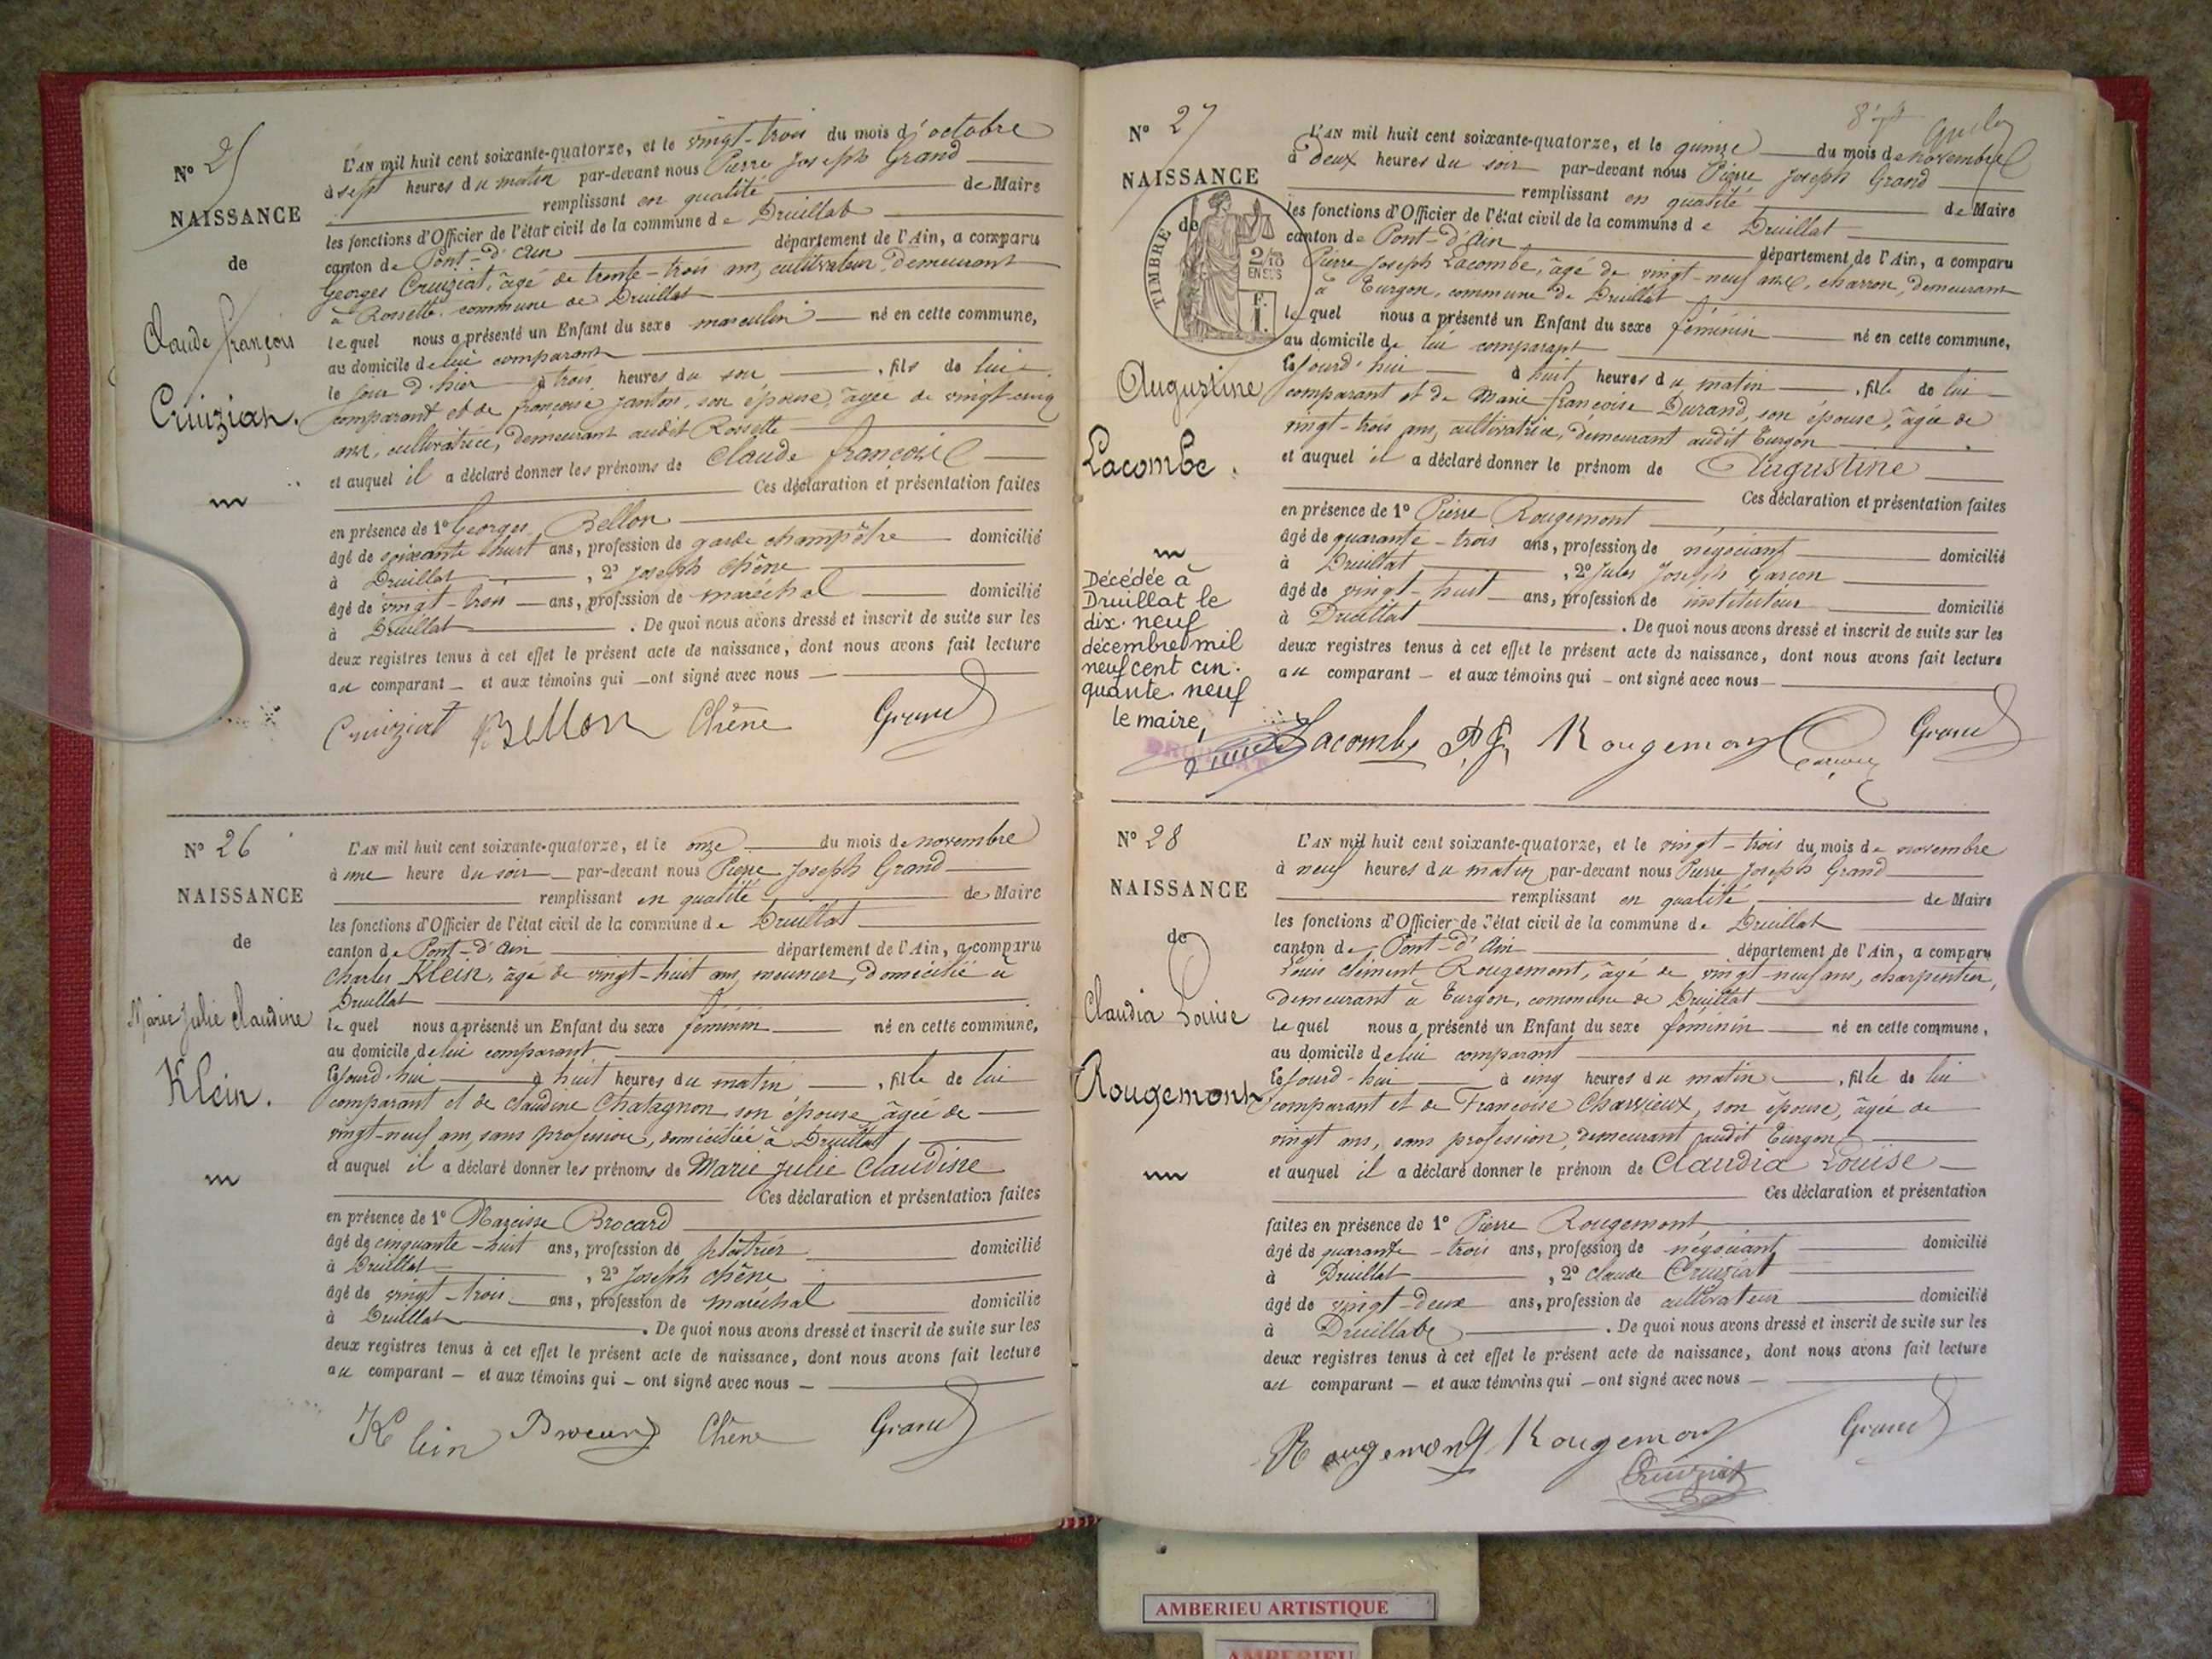 N° 25
NAISSANCE
de
Claude françois
Cruiziat.
L'AN mil huit cent soixante-quatorze, et le vingt-trois du mois d'octobre
à sept heures du matin par-devant nous Pierre Joseph Grand
remplissant en qualité de Maire
les fonctions d'Officier de l'état civil de la commune de Druillat
canton de Pont-d'Ain département de l'Ain, a comparu
Georges Cruiziat, âgé de trente-trois ans, cultivateur, demeurant
à Rossette, commune de Druillat
lequel nous a présenté un Enfant du sexe masculin né en cette commune,
au domicile de lui comparant
le jour d'hier à trois heures du soir, fils de lui
comparant et de françoise Janton, son épouse, âgée de vingt-cinq
ans, cultivatrice, demeurant audit Rossette
et auquel il a déclaré donner les prénoms de Claude françois
Ces déclaration et présentation faites
en présence de 1° Georges Bellon
âgé de soixante-huit ans, profession de garde champêtre domicilié
à Druillat, 2° Joseph Chêne
âgé de vingt-trois ans, profession de maréchal domicilié
à Druillat. De quoi nous avons dressé et inscrit de suite sur les
deux registres tenus à cet effet le présent acte de naissance, dont nous avons fait lecture
au comparant et aux témoins qui ont signé avec nous
Cruiziat Bellon Chêne Grand
N° 26
NAISSANCE
de
Marie Julie Claudine
Klein.
L'AN mil huit cent soixante-quatorze, et le onze du mois de novembre
à une heure du soir par-devant nous Pierre Joseph Grand
remplissant en qualité de Maire
les fonctions d'Officier de l'état civil de la commune de Druillat
canton de Pont-d'Ain département de l'Ain, a comparu
Charles Klein, âgé de vingt-huit ans, meunier, domicilié à
Druillat
lequel nous a présenté un Enfant du sexe féminin né en cette commune,
au domicile de lui comparant
cejourd'hui à huit heures du matin, fille de lui
comparant et de Claudine Chatagnon son épouse âgée de
vingt-neuf ans, sans profession, domiciliée à Druillat
et auquel il a déclaré donner les prénoms de Marie Julie Claudine
Ces déclaration et présentation faites
en présence de 1° Narcisse Brocard
âgé de cinquante-huit ans, profession de plâtrier domicilié
à Druillat, 2° Joseph Chêne
âgé de vingt-trois ans, profession de maréchal domicilié
à Druillat. De quoi nous avons dressé et inscrit de suite sur les
deux registres tenus à cet effet le présent acte de naissance, dont nous avons fait lecture
au comparant et aux témoins qui ont signé avec nous
Klein Brocard Chêne Grand
N° 27
NAISSANCE
de
TIMBRE
2/10
EN SUS
Augustine
Lacombe.
Décédée à
Druillat le
dix-neuf
décembre mil
neuf cent cin-
quante-neuf
le maire,
DRUILLAT
L'AN mil huit cent soixante-quatorze, et le quinze du mois de novembre
à deux heures du soir par-devant nous Pierre Joseph Grand
remplissant en qualité de Maire
les fonctions d'Officier de l'état civil de la commune de Druillat
canton de Pont-d'Ain département de l'Ain, a comparu
Pierre Joseph Lacombe, âgé de vingt-neuf ans, charron, demeurant
à Turgon, commune de Druillat
lequel nous a présenté un Enfant du sexe féminin né en cette commune,
au domicile de lui comparant
cejourd'hui à huit heures du matin, fille de lui
comparant et de Marie françoise Durand, son épouse, âgée de
vingt-trois ans, cultivatrice, demeurant audit Turgon
et auquel il a déclaré donner le prénom de Augustine
Ces déclaration et présentation faites
en présence de 1° Pierre Rougemont
âgé de quarante-trois ans, profession de négociant domicilié
à Druillat, 2° Jules Joseph Garçon
âgé de vingt-huit ans, profession de instituteur domicilié
à Druillat. De quoi nous avons dressé et inscrit de suite sur les
deux registres tenus à cet effet le présent acte de naissance, dont nous avons fait lecture
au comparant et aux témoins qui ont signé avec nous
Lacombe P. J. Rougemont Garçon Grand
N° 28
NAISSANCE
de
Claudia Louise
Rougemont
L'AN mil huit cent soixante-quatorze, et le vingt-trois du mois de novembre
à neuf heures du matin par-devant nous Pierre Joseph Grand
remplissant en qualité de Maire
les fonctions d'Officier de l'état civil de la commune de Druillat
canton de Pont-d'Ain département de l'Ain, a comparu
Louis Clément Rougemont, âgé de vingt-neuf ans, charpentier,
demeurant à Turgon, commune de Druillat
lequel nous a présenté un Enfant du sexe féminin né en cette commune,
au domicile de lui comparant
cejourd'hui à cinq heures du matin, fille de lui
comparant et de Françoise Charvieux, son épouse, âgée de
vingt ans, sans profession, demeurant audit Turgon
et auquel il a déclaré donner le prénom de Claudia Louise
Ces déclaration et présentation
faites en présence de 1° Pierre Rougemont
âgé de quarante-trois ans, profession de négociant domicilié
à Druillat, 2° Claude Cruiziat
âgé de vingt-deux ans, profession de cultivateur domicilié
à Druillat. De quoi nous avons dressé et inscrit de suite sur les
deux registres tenus à cet effet le présent acte de naissance, dont nous avons fait lecture
au comparant et aux témoins qui ont signé avec nous
Rougemont Rougemont Grand
Cruiziat
AMBERIEU ARTISTIQUE
AMBERIEU